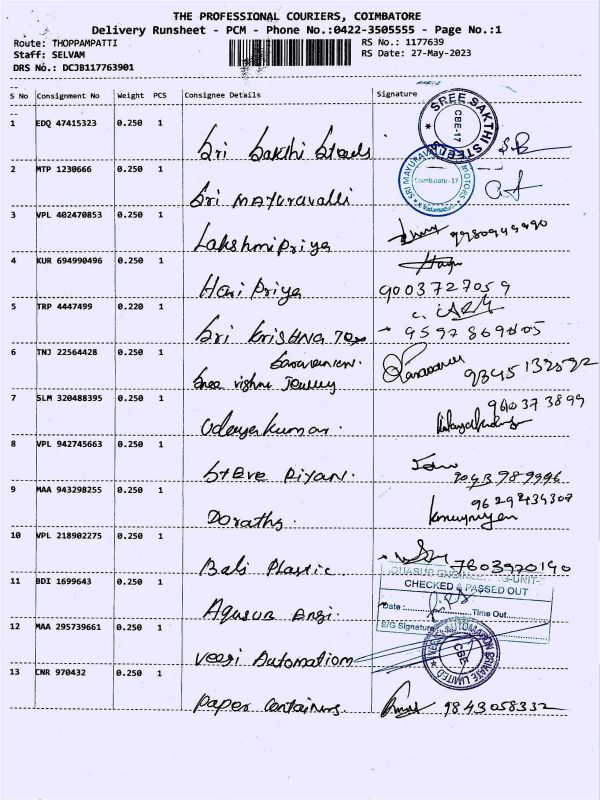 THE PROFESSIONAL COURIERS, COIMBATORE
Delivery Runsheet - PCM - Phone No.:0422-3505555 - Page No.:1
Route: THOPPAMPATTI RS No.: 1177639
Staff: SELVAM RS Date: 27-May-2023
DRS No.: DCJB117763901
S No Consignment No Weight PCS Consignee Details Signature
1 EDQ 47415323 0.250 1 Sri Sakthi Steels
SREE SAKTHI STEELS CBE-17
2 MTP 1230666 0.250 1 Sri Mayuravalli
SRI MAYURAVALLI MOTORS Coimbatore - 17
3 VPL 402470853 0.250 1 Lakshmipriya
4 KUR 694990496 0.250 1 Hari Priya 9003727059
5 TRP 4447499 0.220 1 Sri Krishna Tex
6 TNJ 22564428 0.250 1 Saravanan.
Sree vishnu 
7 SLM 320488395 0.250 1 Udayakumar.
8 VPL 942745663 0.250 1 Steve Riyan.
9 MAA 943298255 0.250 1 Dorathy.
10 VPL 218902275 0.250 1 Balj Plastic 7603970140
11 BDI 1699643 0.250 1 Aqusub Engi.
AQUASUB ENGINEERING-UNIT-
CHECKED & PASSED OUT
Date : Time Out
S/G Signature
12 MAA 295739661 0.250 1 Veeri Automation
AUTOMATION PRIVATE LIMITED CBE
13 CNR 970432 0.250 1 Paper Containers. 9843058332